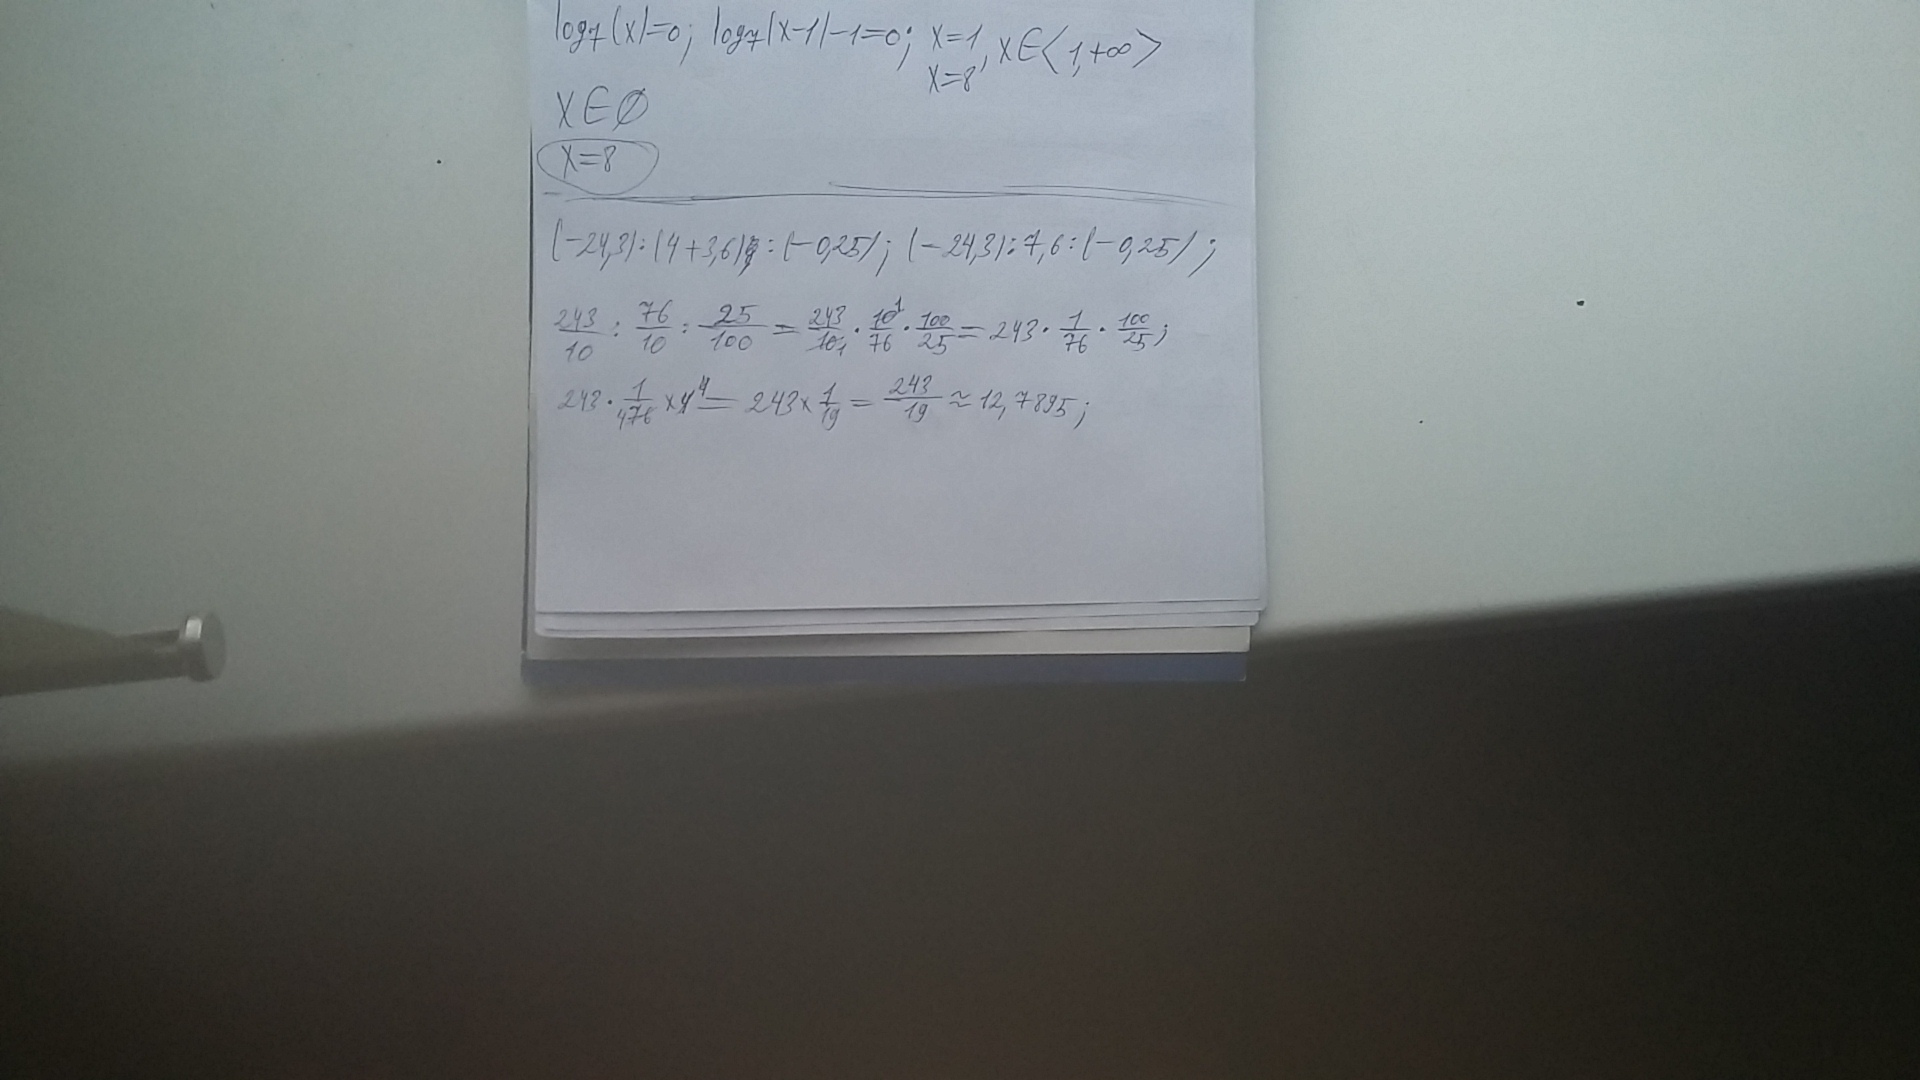 log₇(x)=0; log₇(x-1)-1=0; x=1, x∈<1,+∞>
x=8
x∈∅
x=8
(-24,3):(4+3,6):(-0,25); (-24,3):7,6:(-0,25);
243/10 : 76/10 : 25/100 = 243/10₁ · 10¹/76 · 100/25 = 243 · 1/76 · 100/25;
243 · 1/476 x 4⁴ = 243 x 1/19 = 243/19 ≈ 12,7895;